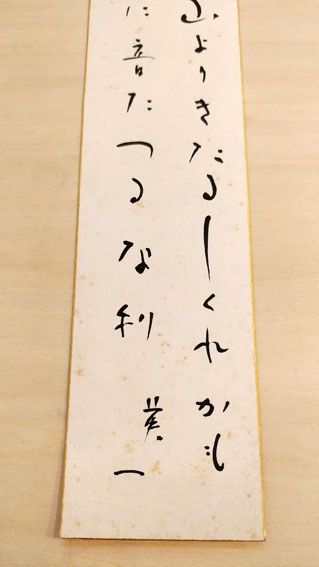 山よりきたるしくれかも
に音たつるな利
英一